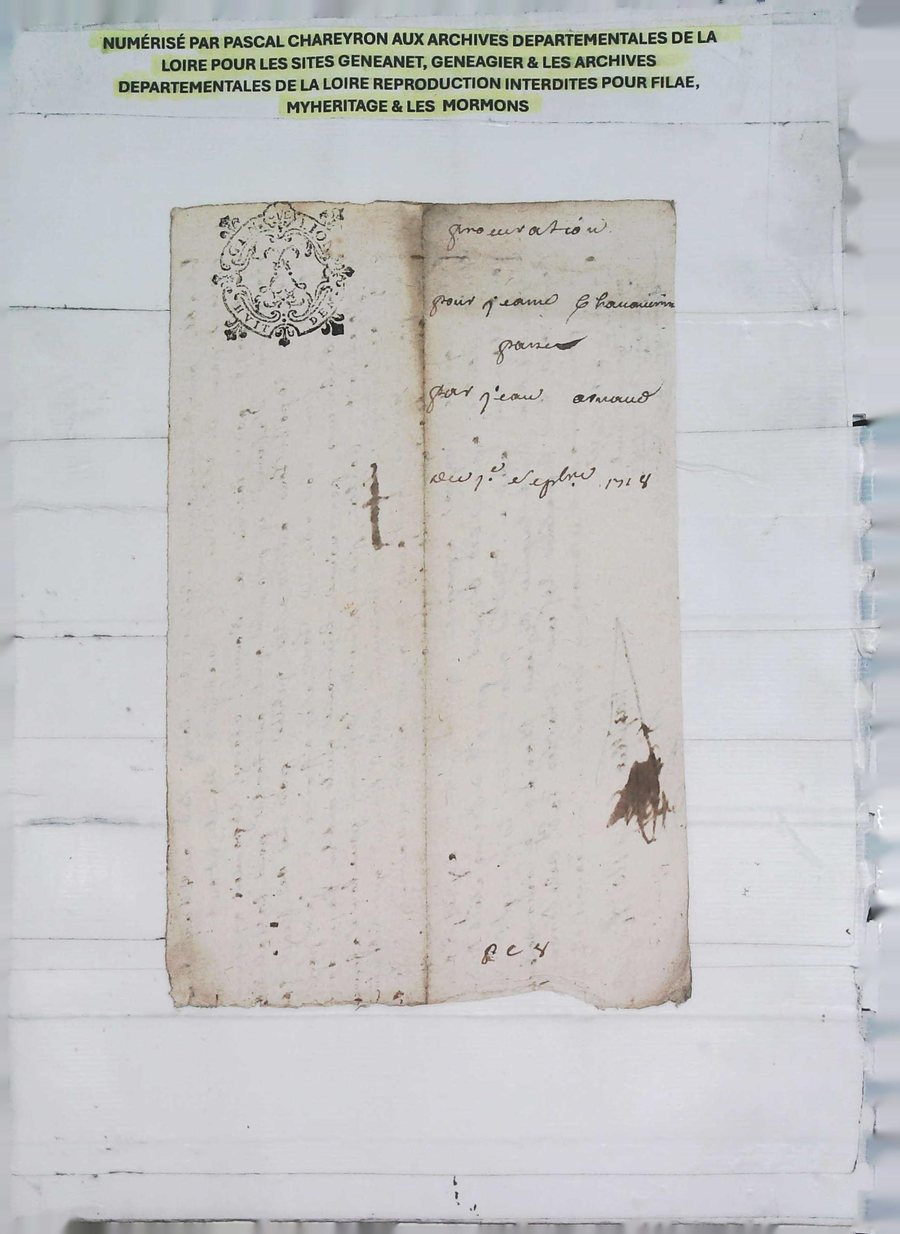 NUMÉRISÉ PAR PASCAL CHAREYRON AUX ARCHIVES DEPARTEMENTALES DE LA
LOIRE POUR LES SITES GENEANET, GENEAGIER & LES ARCHIVES
DEPARTEMENTALES DE LA LOIRE REPRODUCTION INTERDITES POUR FILAE,
MYHERITAGE & LES MORMONS
HUIT DEN
procuration
pour jeanne
par jean arnaud
du 1e Sepbre 1718